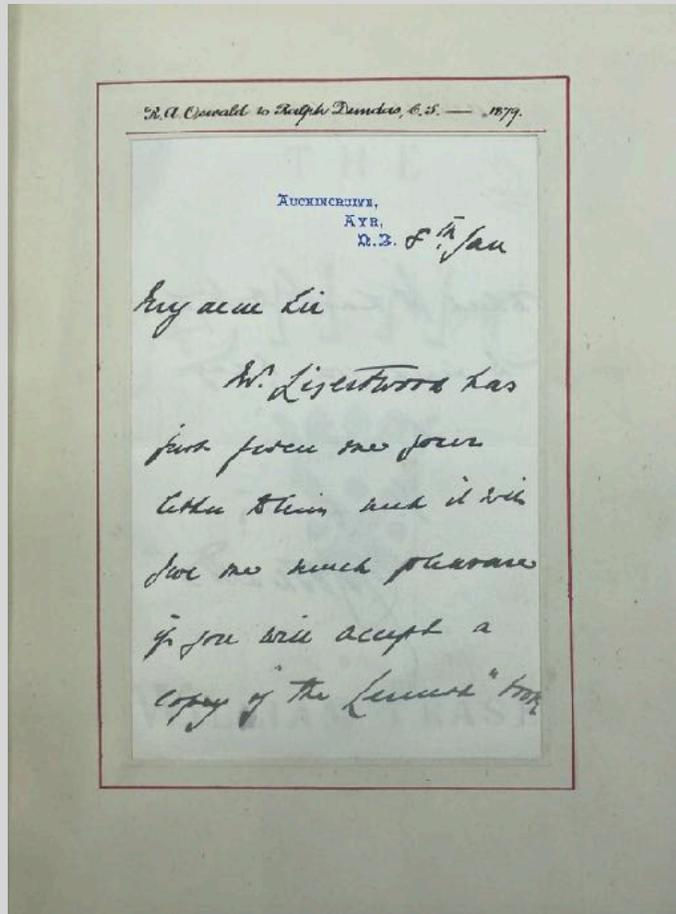 R. A. Oswald to Ralph Dundas, C.S. — 1879.
AUCHINCRUIVE,
AYR,
N.B. 8th Jan
My dear Sir
Mr. has
just given me your
letter to him and it will
give me much pleasure
if you will accept a
copy of "the Lennox" book